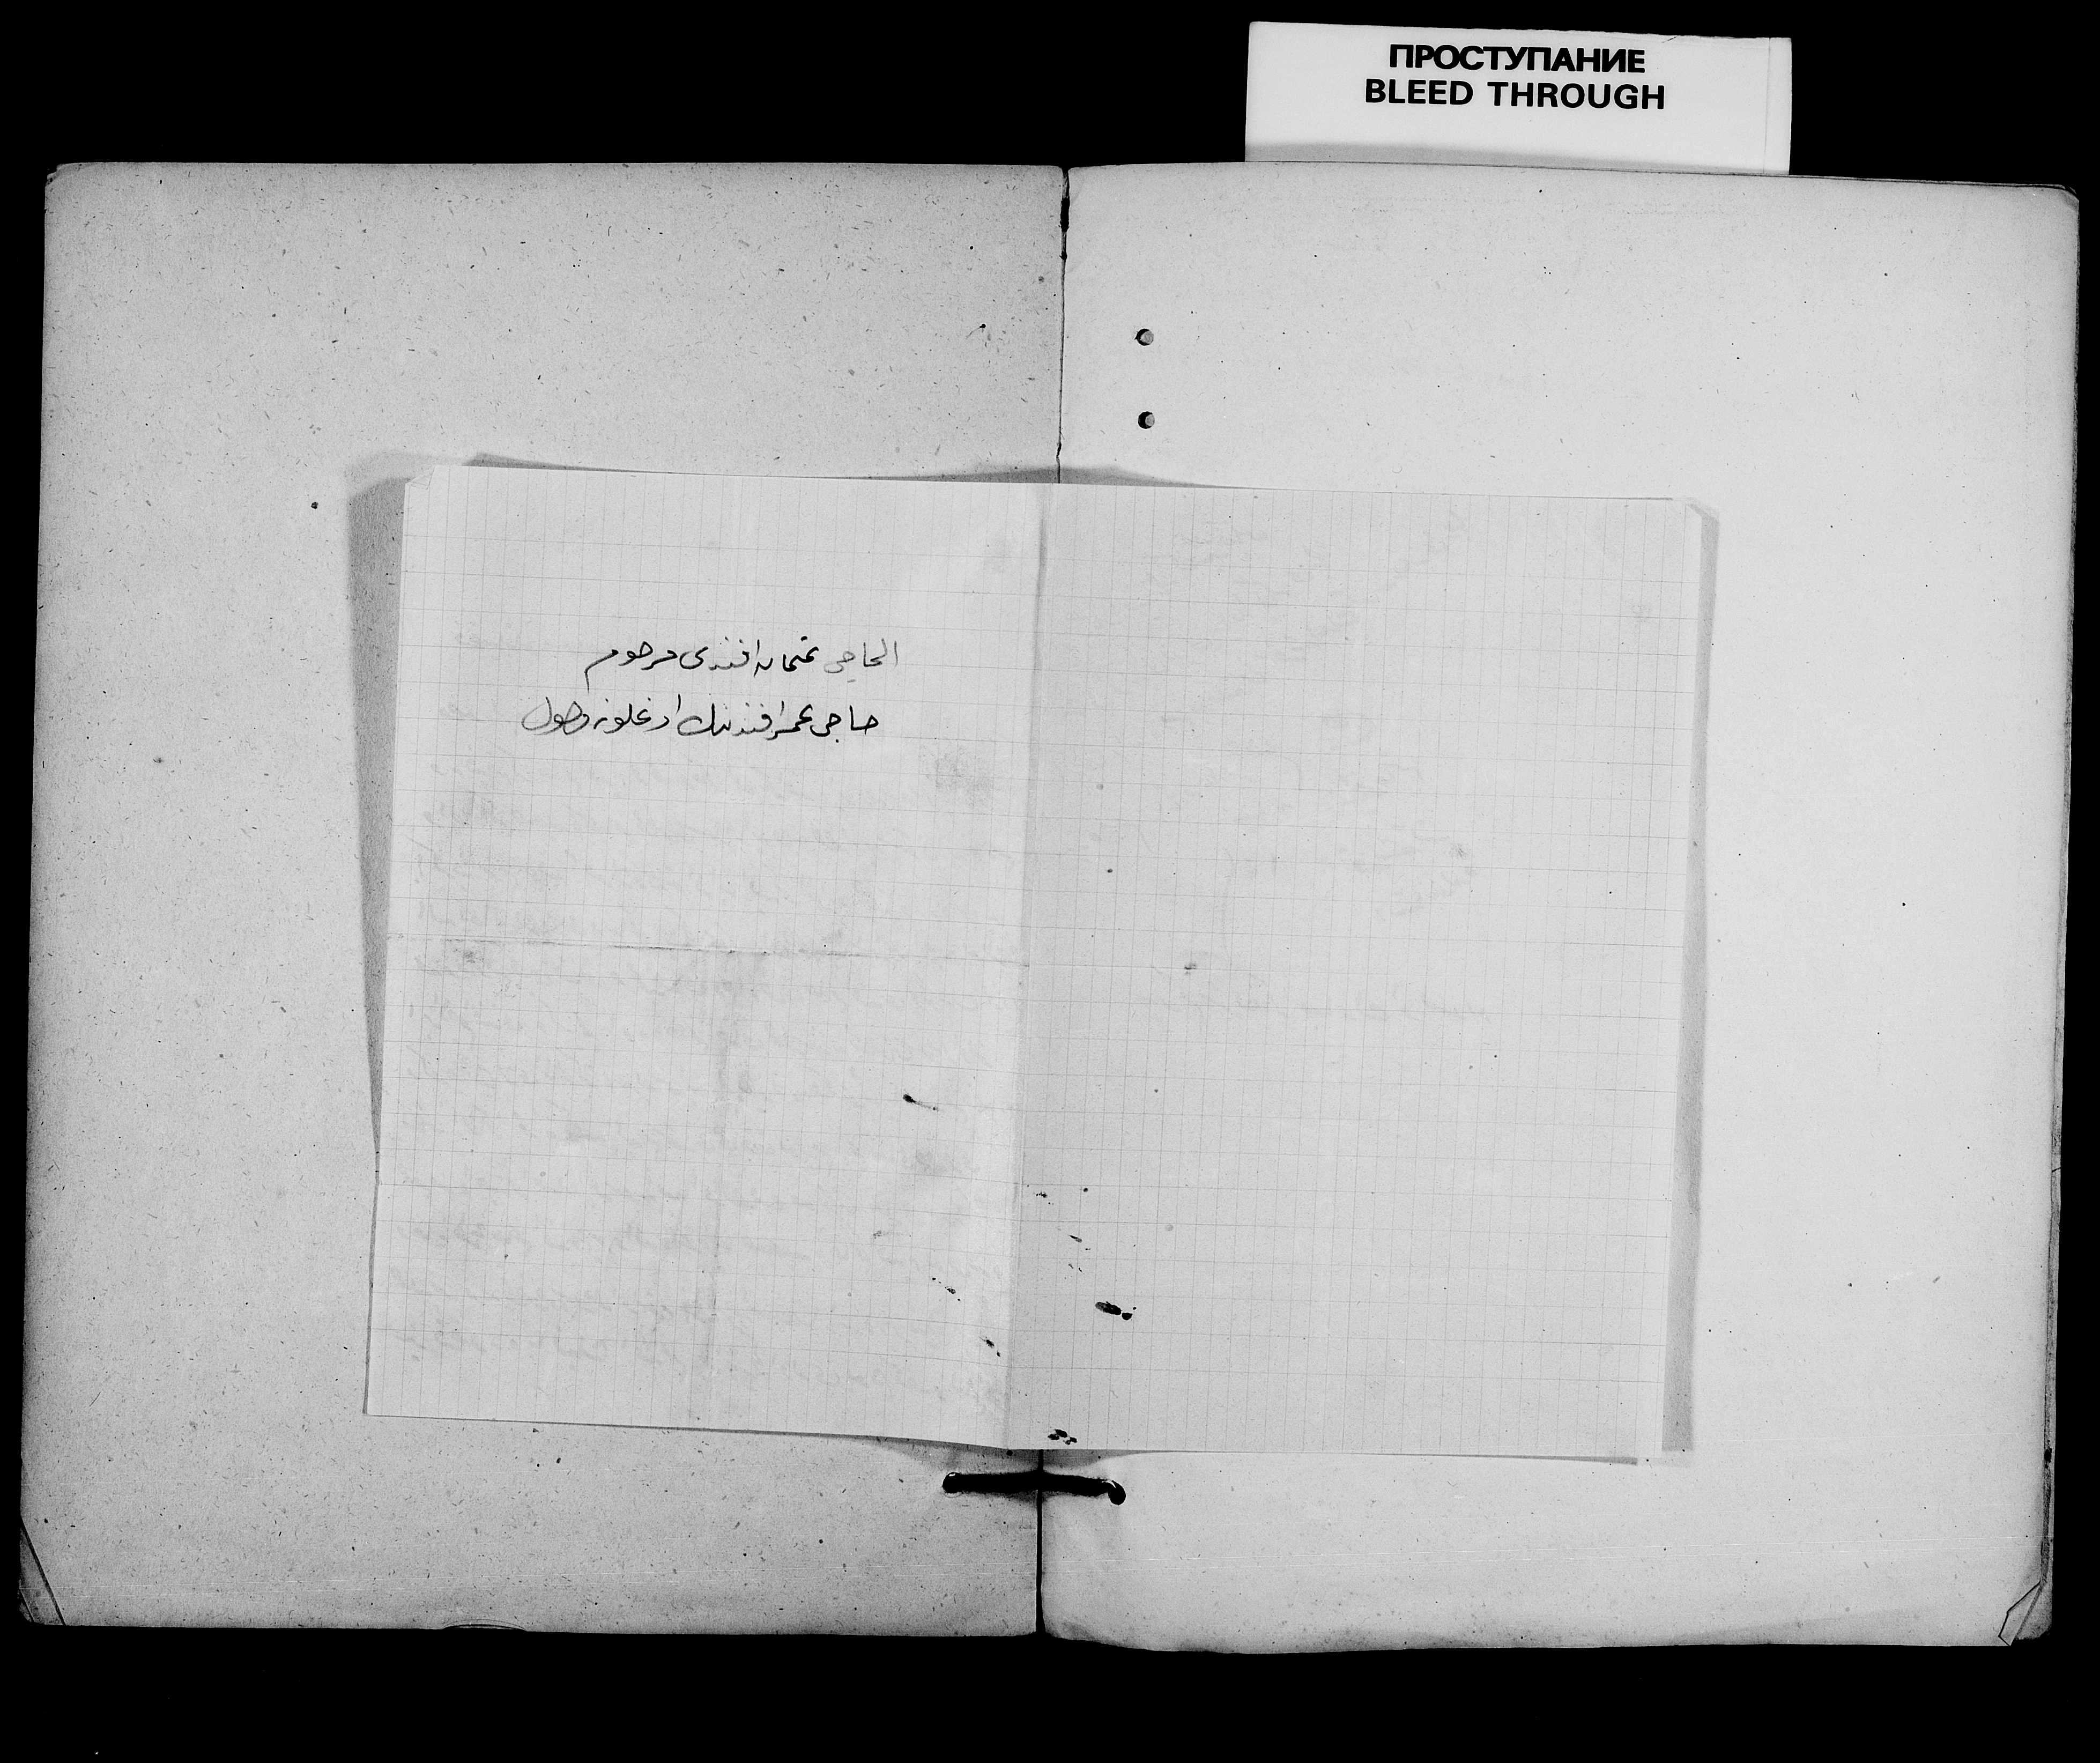 ПРОСТУПАНИЕ
BLEED THROUGH
الحاجى عثمان افندى مرحوم
حاجى عمر افندينك اوغلونه وصول